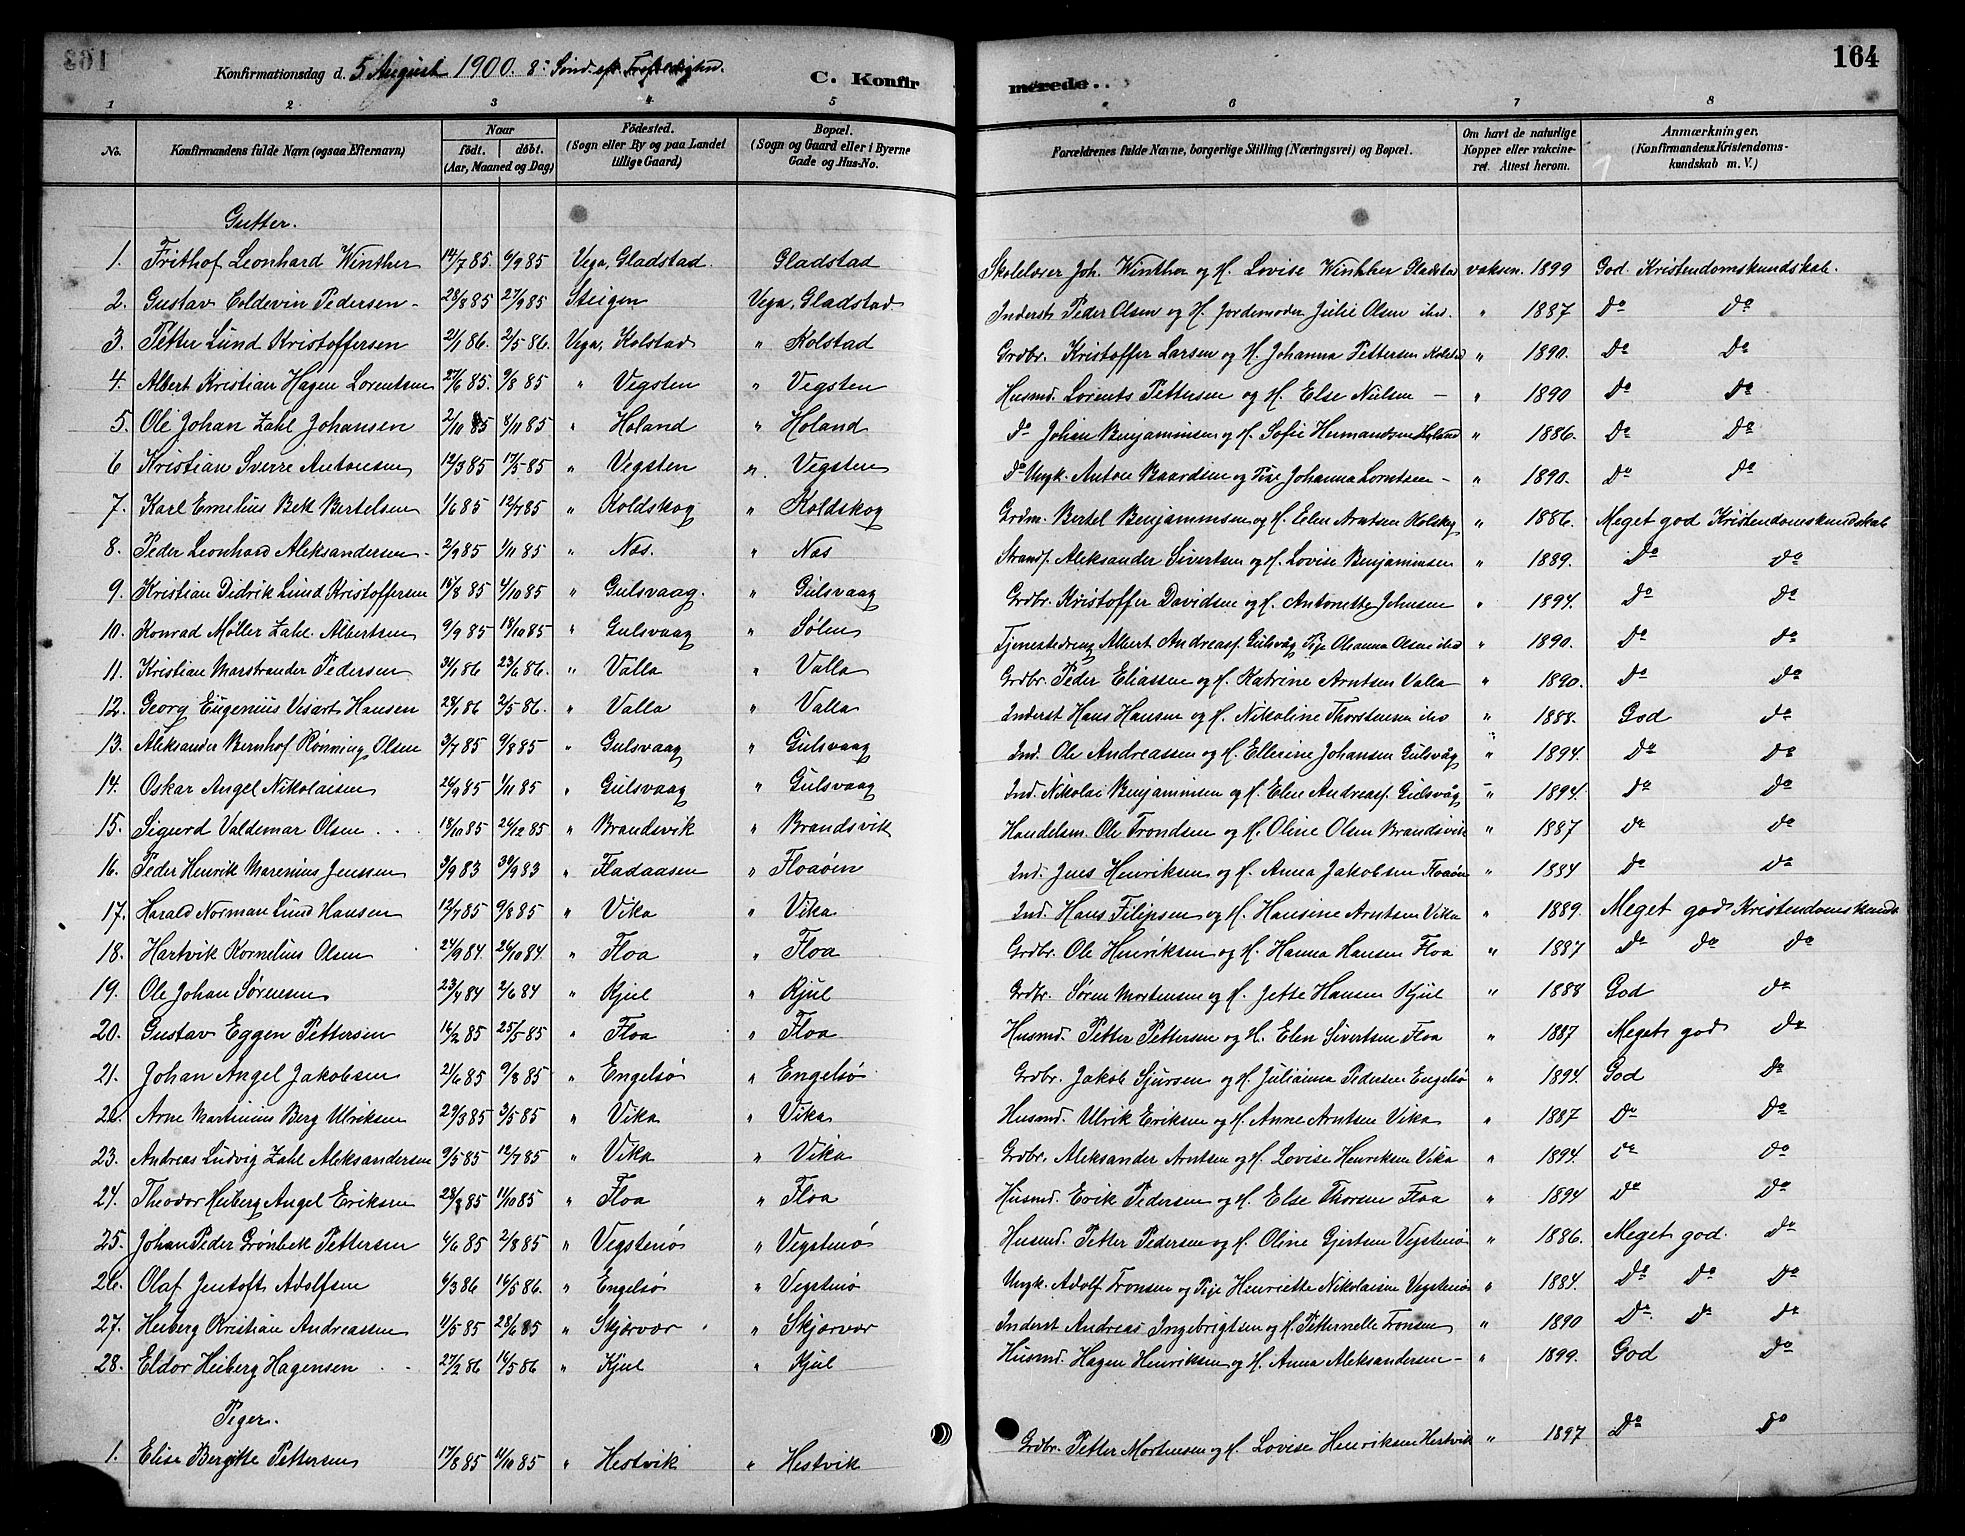 164
Konfirmationsdag d. 5 August 1900. 8: Sønd. eft. Trefoldighd.
C. Konfir merede.
1 2 3 4 5 6 7 8
No. Konfirmandens fulde Navn (ogsaa Efternavn) Naar født. døbt. (Aar, Maaned og Dag) Fødested. (Sogn eller By og paa Landet tillige Gaard) Bopæl. (Sogn og Gaard eller i Byerne Gade og Hus-No. Forældrenes fulde Navne, borgerlige Stilling (Næringsvei) og Bopæl. Om havt de naturlige Kopper eller vakcineret. Attest herom. Anmærkninger. (Konfirmandens Kristendomskundskab m. V.)
Gutter.
1. Frithof Leonhard Winther 14/7 85. 6/9 85 Vega, Gladstad. Gladstad Skolelærer Joh. Winther og H. Lovise Winther Gladstad vaksen. 1899 God Kristendomskundskab.
2. Gustav Coldevin Pedersen 28/8 85 27/9 85 Steigen Vega, Gladstad Inderst Peder Olsen og H. Jordemoder Julie Olsen ibd. " 1887 Do Do
3. Petter Lund Kristoffersen 2/1 86. 2/5 86. Vega, Kolstad " Kolstad Grdbr. Kristoffer Larsen og H. Johanna Pettersen Kolstad " 1890. Do Do
4. Albert Kristian Hagen Lorentsen 27/6 85. 9/8 85 " Vegsten " Vegsten Husmd. Lorents Pettersen og H. Else Nielsen — " 1890 Do Do
5. Ole Johan Zahl Johansen 2/10 85 8/11 85 " Holand " Holand Do Johan Benjaminsen og H. Sofie Hermandsen Holand " 1886. Do Do
6 Kristian Sverre Antonsen 12/3 85 17/5 85 " Vegsten " Vegsten Do Ungk. Anton Baardsen og Pige Johanna Lorntsen — " 1890. Do Do
7. Karl Emelius Bek Bertelsen 1/6 85 12/7 85 " Koldskog " Koldskog Grdm. Bertel Benjaminsen og H. Elen Arntsen Kolskog " 1886. Meget god Kristendomskundskab
8. Peder Leonhard Aleksandersen 2/9 85 1/11 85 " Næs. " Næs Strands. Aleksander Sivertsen og H. Lovise Benjaminsen " 1889. Do Do
9. Kristian Didrik Lund Kristoffersen 16/8 85 4/10 85 " Gulsvaag. " Gulsvaag Grdbr. Kristoffer Davidsen og H. Antonette Johnsen " 1894. Do Do
10. Konrad Møller Zahl Albertsen 9/9 85 18/10 85 " Gulsvaag " Sølen Tjenestedreng Albert Andreass. Gulsvåg Pige Olianna Olsen ibd " 1890. Do Do
11. Kristian Marstrander Pedersen 31/1 86 23/6 86. " Valla " Valla Grdbr. Peder Eliassen og H. Katrine Arntsen Valla " 1890. Do Do
12. Georg Eugenius Visart Hansen 28/1 86 2/5 86. " Valla " Valla Inderst Hans Hansen og H. Nikoline Thorstensen ibd " 1888. God Do
13. Aleksander Bernhof Rønning Olsen 3/7 85 9/8 85 " Gulsvaag " Gulsvaag Ind. Ole Andreassen og H. Ellerine Johansen Gulsvåg " 1894. Do Do
14. Oskar Angel Nikolaisen 26/9 85 1/11 85 " Gulsvaag " Gulsvaag Ind. Nikolai Benjaminsen og H. Elen Andreass. Gulsvåg " 1894. Do Do
15. Sigurd Valdemar Olsen 18/10 85 26/12 85 " Brandsvik " Brandsvik Handelsm. Ole Trondsen og H. Oline Olsen Brandsvik " 1887 Do Do
16. Peder Henrik Marenius Jensen 3/9 83 30/9 83 " Fladaasen " Floaøen Ind. Jens Henriksen og H. Anna Jakobsen Floaøen " 1884 Do Do
17. Harald Norman Lund Hansen 12/7 85 9/8 85 " Vika " Vika Ind. Hans Filipsen og H. Hansine Arntsen Vika " 1889. Meget god Kristendomskunds
18. Hartvik Kornelius Olsen 24/9 84 26/10 84. " Floa " Floa Grdbr. Ole Henriksen og H. Hanna Hansen Floa " 1887 Do Do Do
19. Ole Johan Sørensen 23/4 84 2/6 84 " Kjul " Kjul Grdbr. Søren Mortensen og H. Jette Hansen Kjul " 1888 God Do
20. Gustav Eggen Pettersen 16/2 85 25/5 85 " Floa " Floa Husmd. Petter Pettersen og H. Elen Sivertsen Floa " 1887 Meget god Do
21. Johan Angel Jakobsen 21/6 85 9/8 85 " Engelsø " Engelsø Grdbr. Jakob Sjursen og H. Julianna Pedersen Engelsø " 1894. God Do
22. Arne Martinius Berg Ulriksen 29/3 85 3/5 85 " Vika " Vika Husmd. Ulrik Eriksen og H. Anne Arntsen Vika " 1887 Do Do
23. Andreas Ludvig Zahl Aleksandersen 9/5 85 12/7 85 " Vika " Vika Grdbr. Aleksander Arntsen og H. Lovise Henriksen Vika " 1894. Do Do
24. Theodor Heiberg Angel Eriksen 28/8 85 11/10 85 " Floa " Floa Husmd. Erik Pedersen og H. Else Thorsen Floa " 1894 Do Do
25. Johan Peder Grønbek Pettersen 4/6 85 2/8 85 " Vegstenø " Vegstenø Husmd. Petter Pedersen og H. Oline Gjertsen Vegstenø " 1886. Meget god. Do
26. Olaf Jentoft Adolfsen 6/3 86 16/5 86. " Engelsø " Vegstenø Ungk. Adolf Tronsen og Pige Henriette Nikolaisen Vegstenø " 1884. Do Do Do
27. Heiberg Kristian Andreassen 11/5 85 28/6 85 " Skjærvær " Skjærvær Inderst Andreas Ingebrigtsen og H. Petternelle Tronsen " 1890 Do Do Do
28. Eldor Heiberg Hagensen 27/2 86 16/5 86 " Kjul " Kjul Husmd. Hagen Henriksen og H. Anna Aleksandersen — " 1899. God Do
Piger.
1. Elise Bergitte Pettersen 17/8 85 11/10 85 " Hestvik " Hestvik Grdbr. Petter Mortensen og H. Lovise Henriksen Hestvik " 1897 Do Do